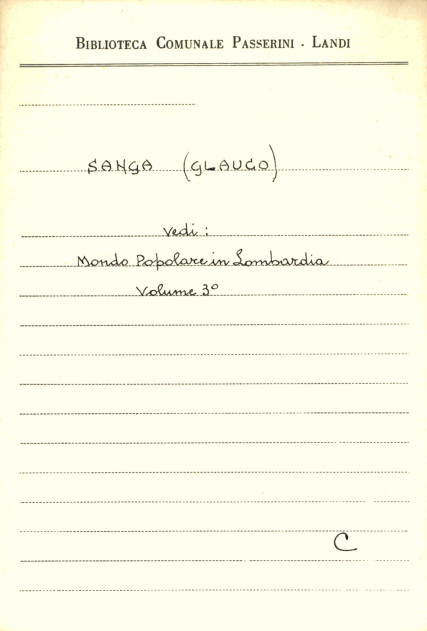 BIBLIOTECA COMUNALE PASSERINI - LANDI
SANGA (GLAUCO)
Vedi :
Mondo Popolare in Lombardia
Volume 3º
C